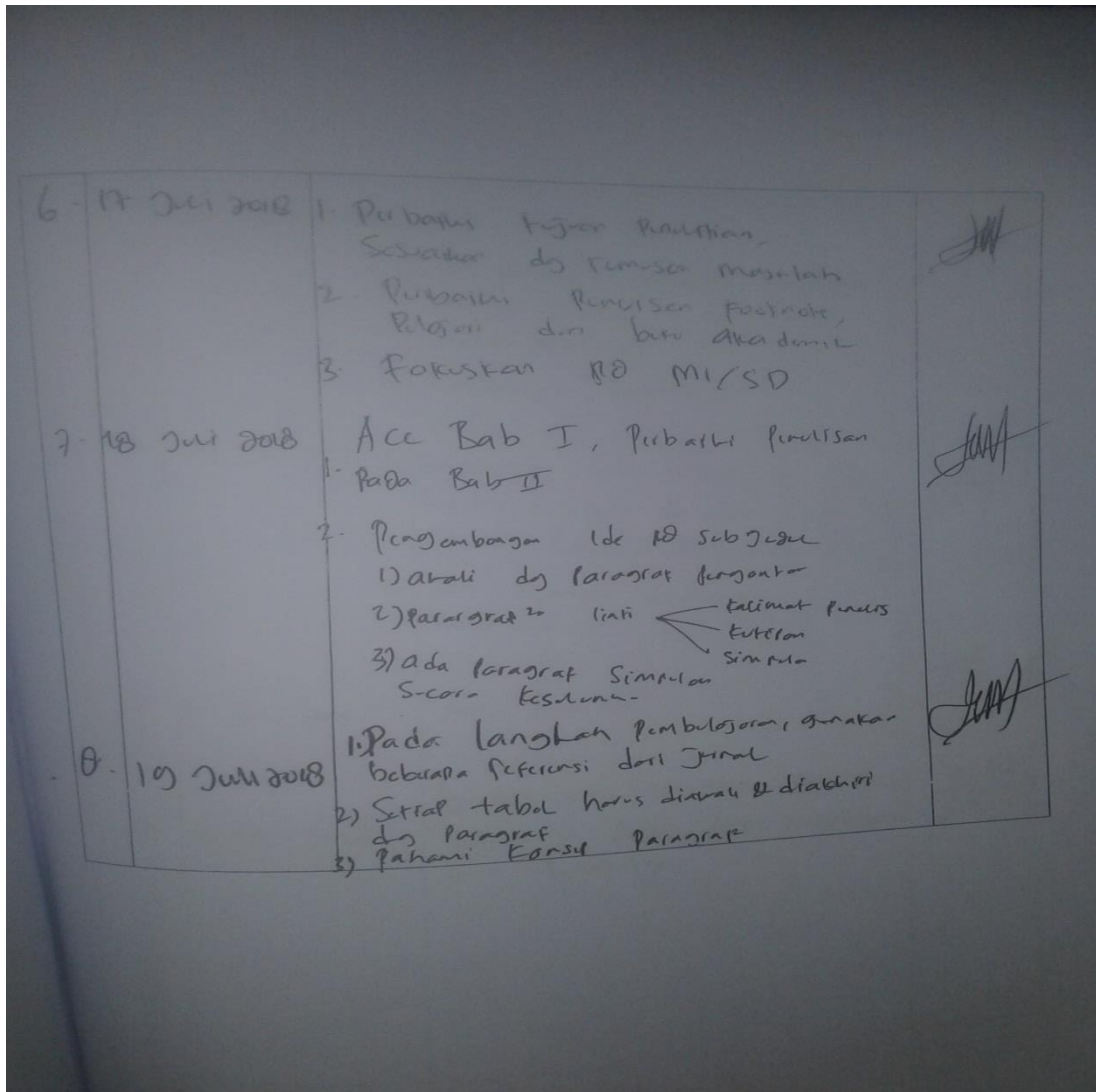 6. 17 Juli 2018 1. Perbaiki tujuan Penelitian,
Sesuaikan dg rumusan masalah
2. Perbaiki Penulisan Footnote,
dari buku akademik
3. Fokuskan pd MI/SD
7. 18 Juli 2018 Acc Bab I, Perbaiki Penulisan
1. Pada Bab II
2. Pengembangan Ide pd sub
1) awali dg Paragraf pengantar
2) Parargraf 2n inti kalimat Penulis
kutipan
simpulan
3) ada Paragraf Simpulan
Secara
8. 19 Juli 2018 1. Pada langkah Pembelajaran, gunakan
beberapa Referensi dari Jurnal
2) Setiap tabel harus diawali & diakhiri
dg Paragraf
3) Pahami Konsep Paragraf